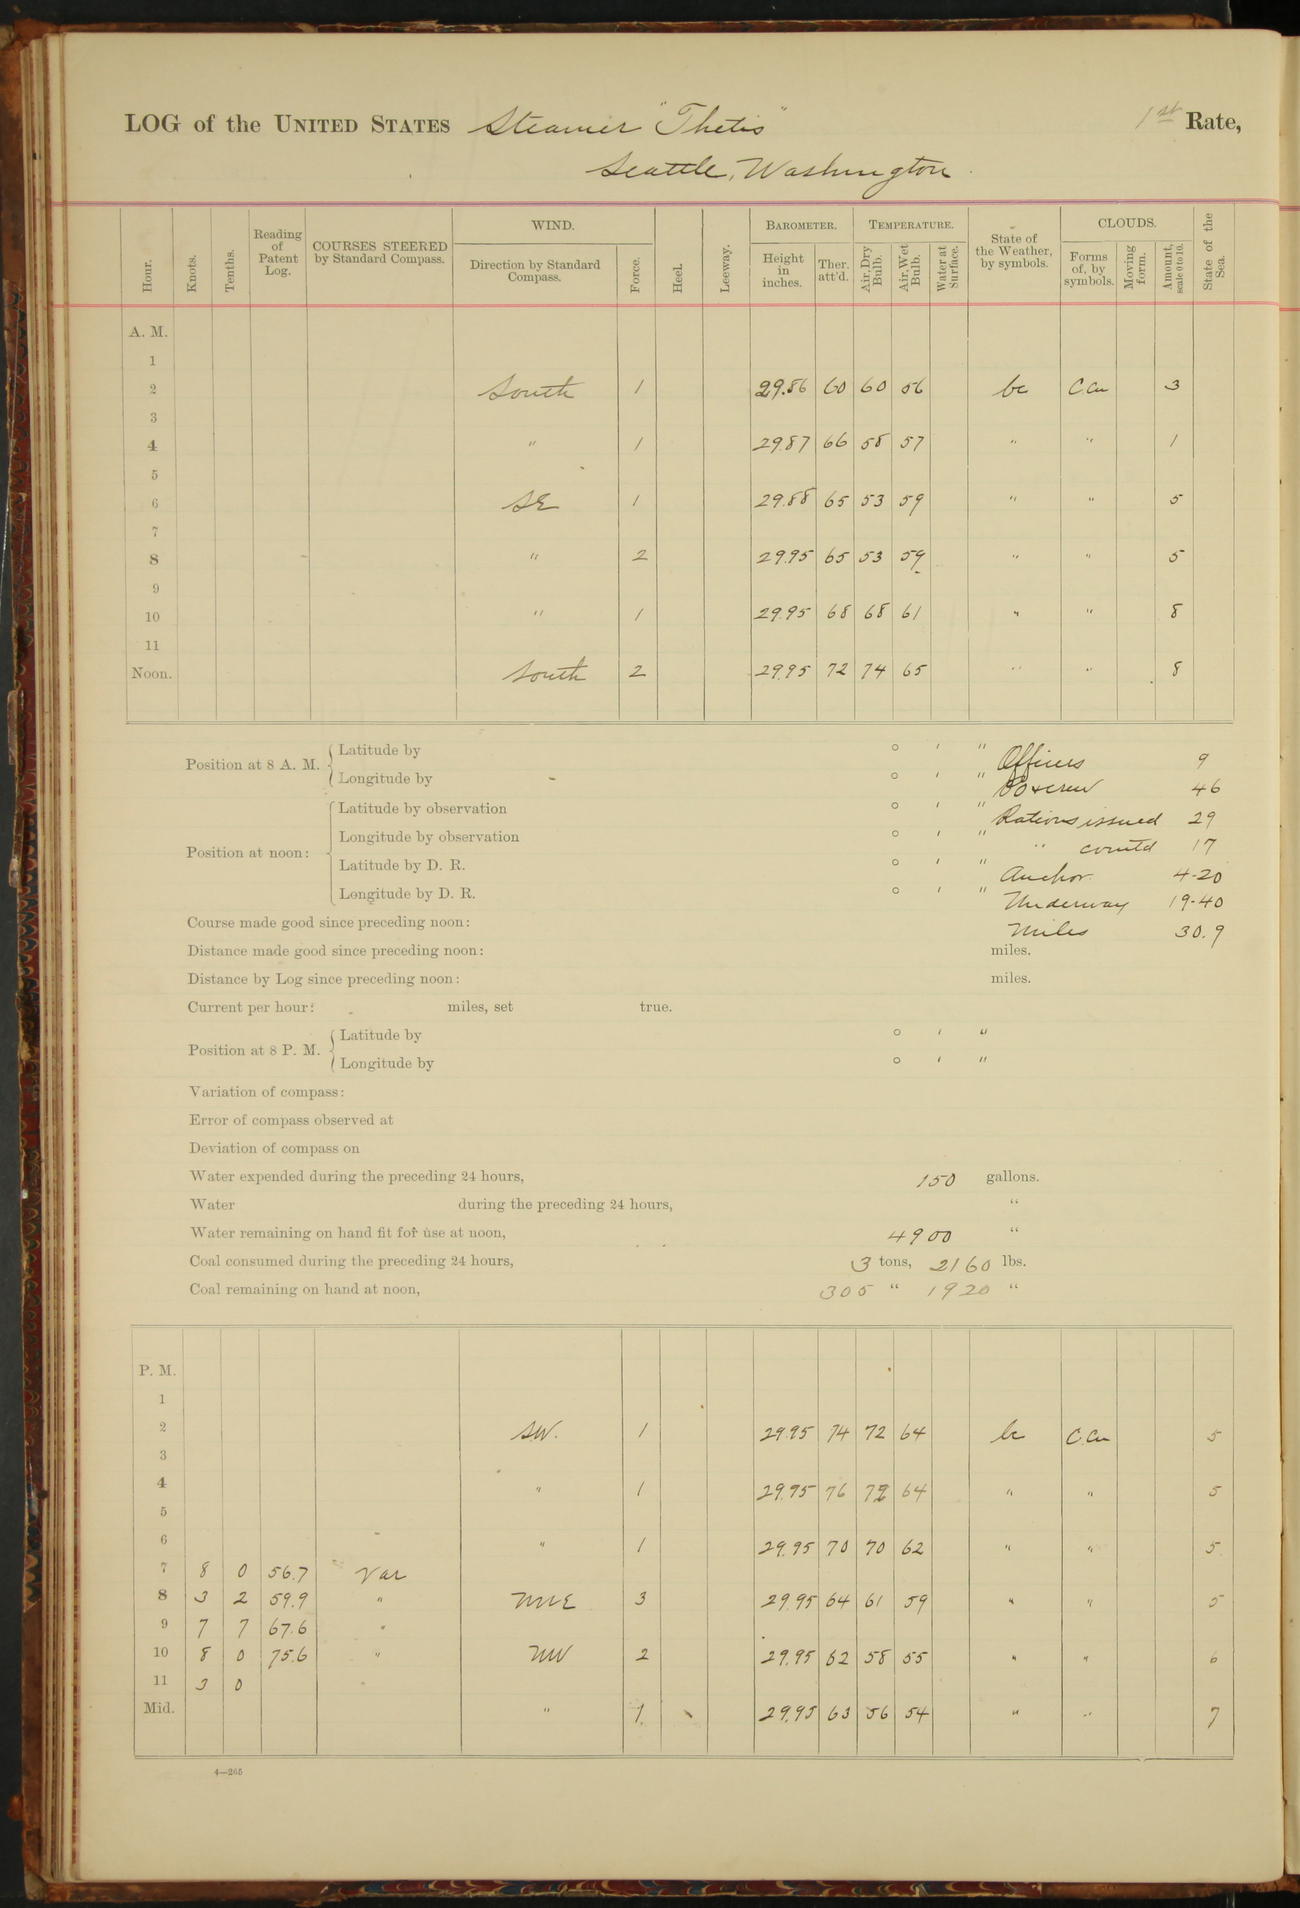 LOG of the UNITED STATES Steamer "Thetis" 1st Rate,
Seattle, Washington
Hour. Knots. Tenths. Reading of Patent Log. COURSES STEERED by Standard Compass. WIND. Direction by Standard Compass. Force. Heel. Leeway. BAROMETER. Height in inches. Ther. att'd. TEMPERATURE. Air, Dry Bulb. Air, Wet Bulb. Water at Surface. State of the Weather, by symbols. CLOUDS. Forms of, by symbols. Moving form. Amount, scale 0 to 10. State of the Sea.
A. M.
1
2 South 1 29.86 60 60 56 bc C.Cu 3
3
4 " 1 29.87 66 58 57 " " 1
5
6 SE 1 29.88 65 53 59 " " 5
7
8 " 2 29.95 65 53 59 " " 5
9
10 " 1 29.95 68 68 61 " " 8
11
Noon. South 2 29.95 72 74 65 " " 8
Position at 8 A. M. Latitude by ° ' " Officers 9
Longitude by ° ' " PO & crew 46
Position at noon: Latitude by observation ° ' " Rations issued 29
Longitude by observation ° ' " " comtd 17
Latitude by D. R. ° ' " Anchor 4-20
Longitude by D. R. ° ' " Underway 19-40
Course made good since preceding noon: Miles 30.9
Distance made good since preceding noon: miles.
Distance by Log since preceding noon: miles.
Current per hour: miles, set true.
Position at 8 P. M. Latitude by ° ' "
Longitude by ° ' "
Variation of compass:
Error of compass observed at
Deviation of compass on
Water expended during the preceding 24 hours, 150 gallons.
Water during the preceding 24 hours, "
Water remaining on hand fit for use at noon, 4900 "
Coal consumed during the preceding 24 hours, 3 tons, 2160 lbs.
Coal remaining on hand at noon, 305 " 1920 "
P. M.
1
2 SW. 1 29.95 74 72 64 bc C.Cu 5
3
4 " 1 29.95 76 72 64 " " 5
5
6 " 1 29.95 70 70 62 " " 5
7 8 0 56.7 Var
8 3 2 59.9 " NNE 3 29.95 64 61 59 " " 5
9 7 7 67.6 "
10 8 0 75.6 " NW 2 29.95 62 58 55 " " 6
11 3 0
Mid. " 1 29.95 63 56 54 " " 7
4—265